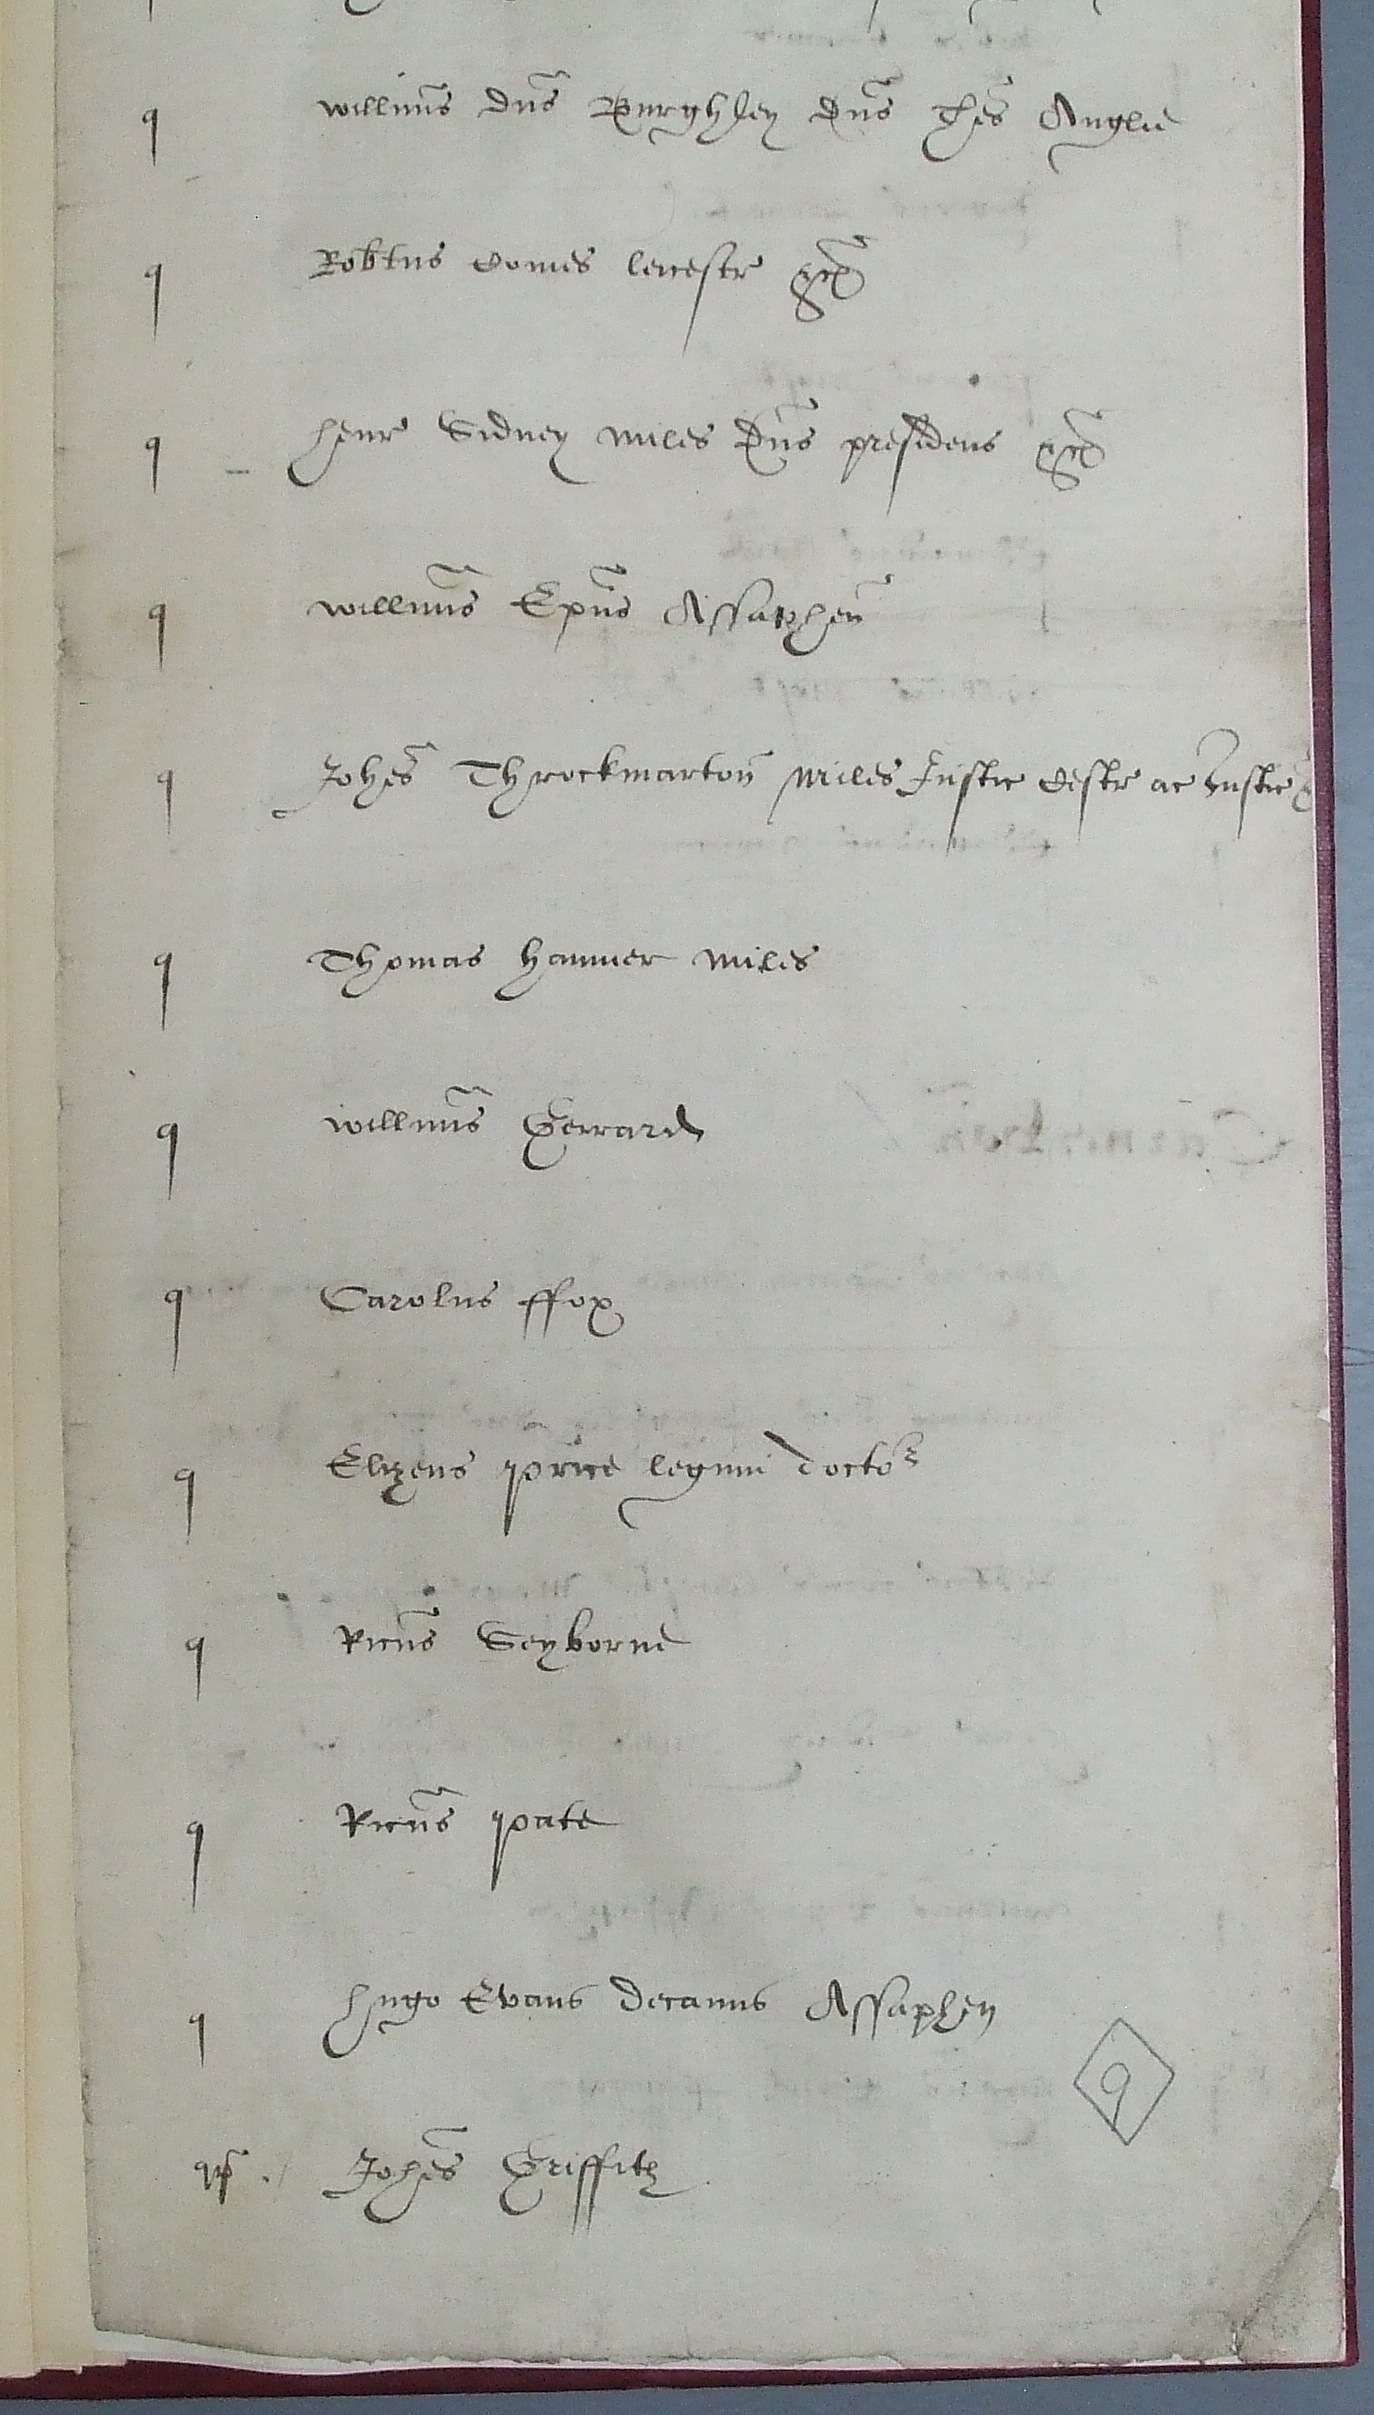 q willmus dns Burghley dns Thes Anglie
q Robtus Comes leicestr
q henr Sidney miles dns presidens
q willmus Epus Assaphen
q Johes Throckmarton miles Justic Cestr ac Justic
q Thomas hanmer miles
q willmus Gerrard
q Carolus ffox
q Elizeus Price legum doctor
q Ricus Seyborne
q Ricus Pate
q hugo Evans decanus Assaphen
9
Johes Griffith